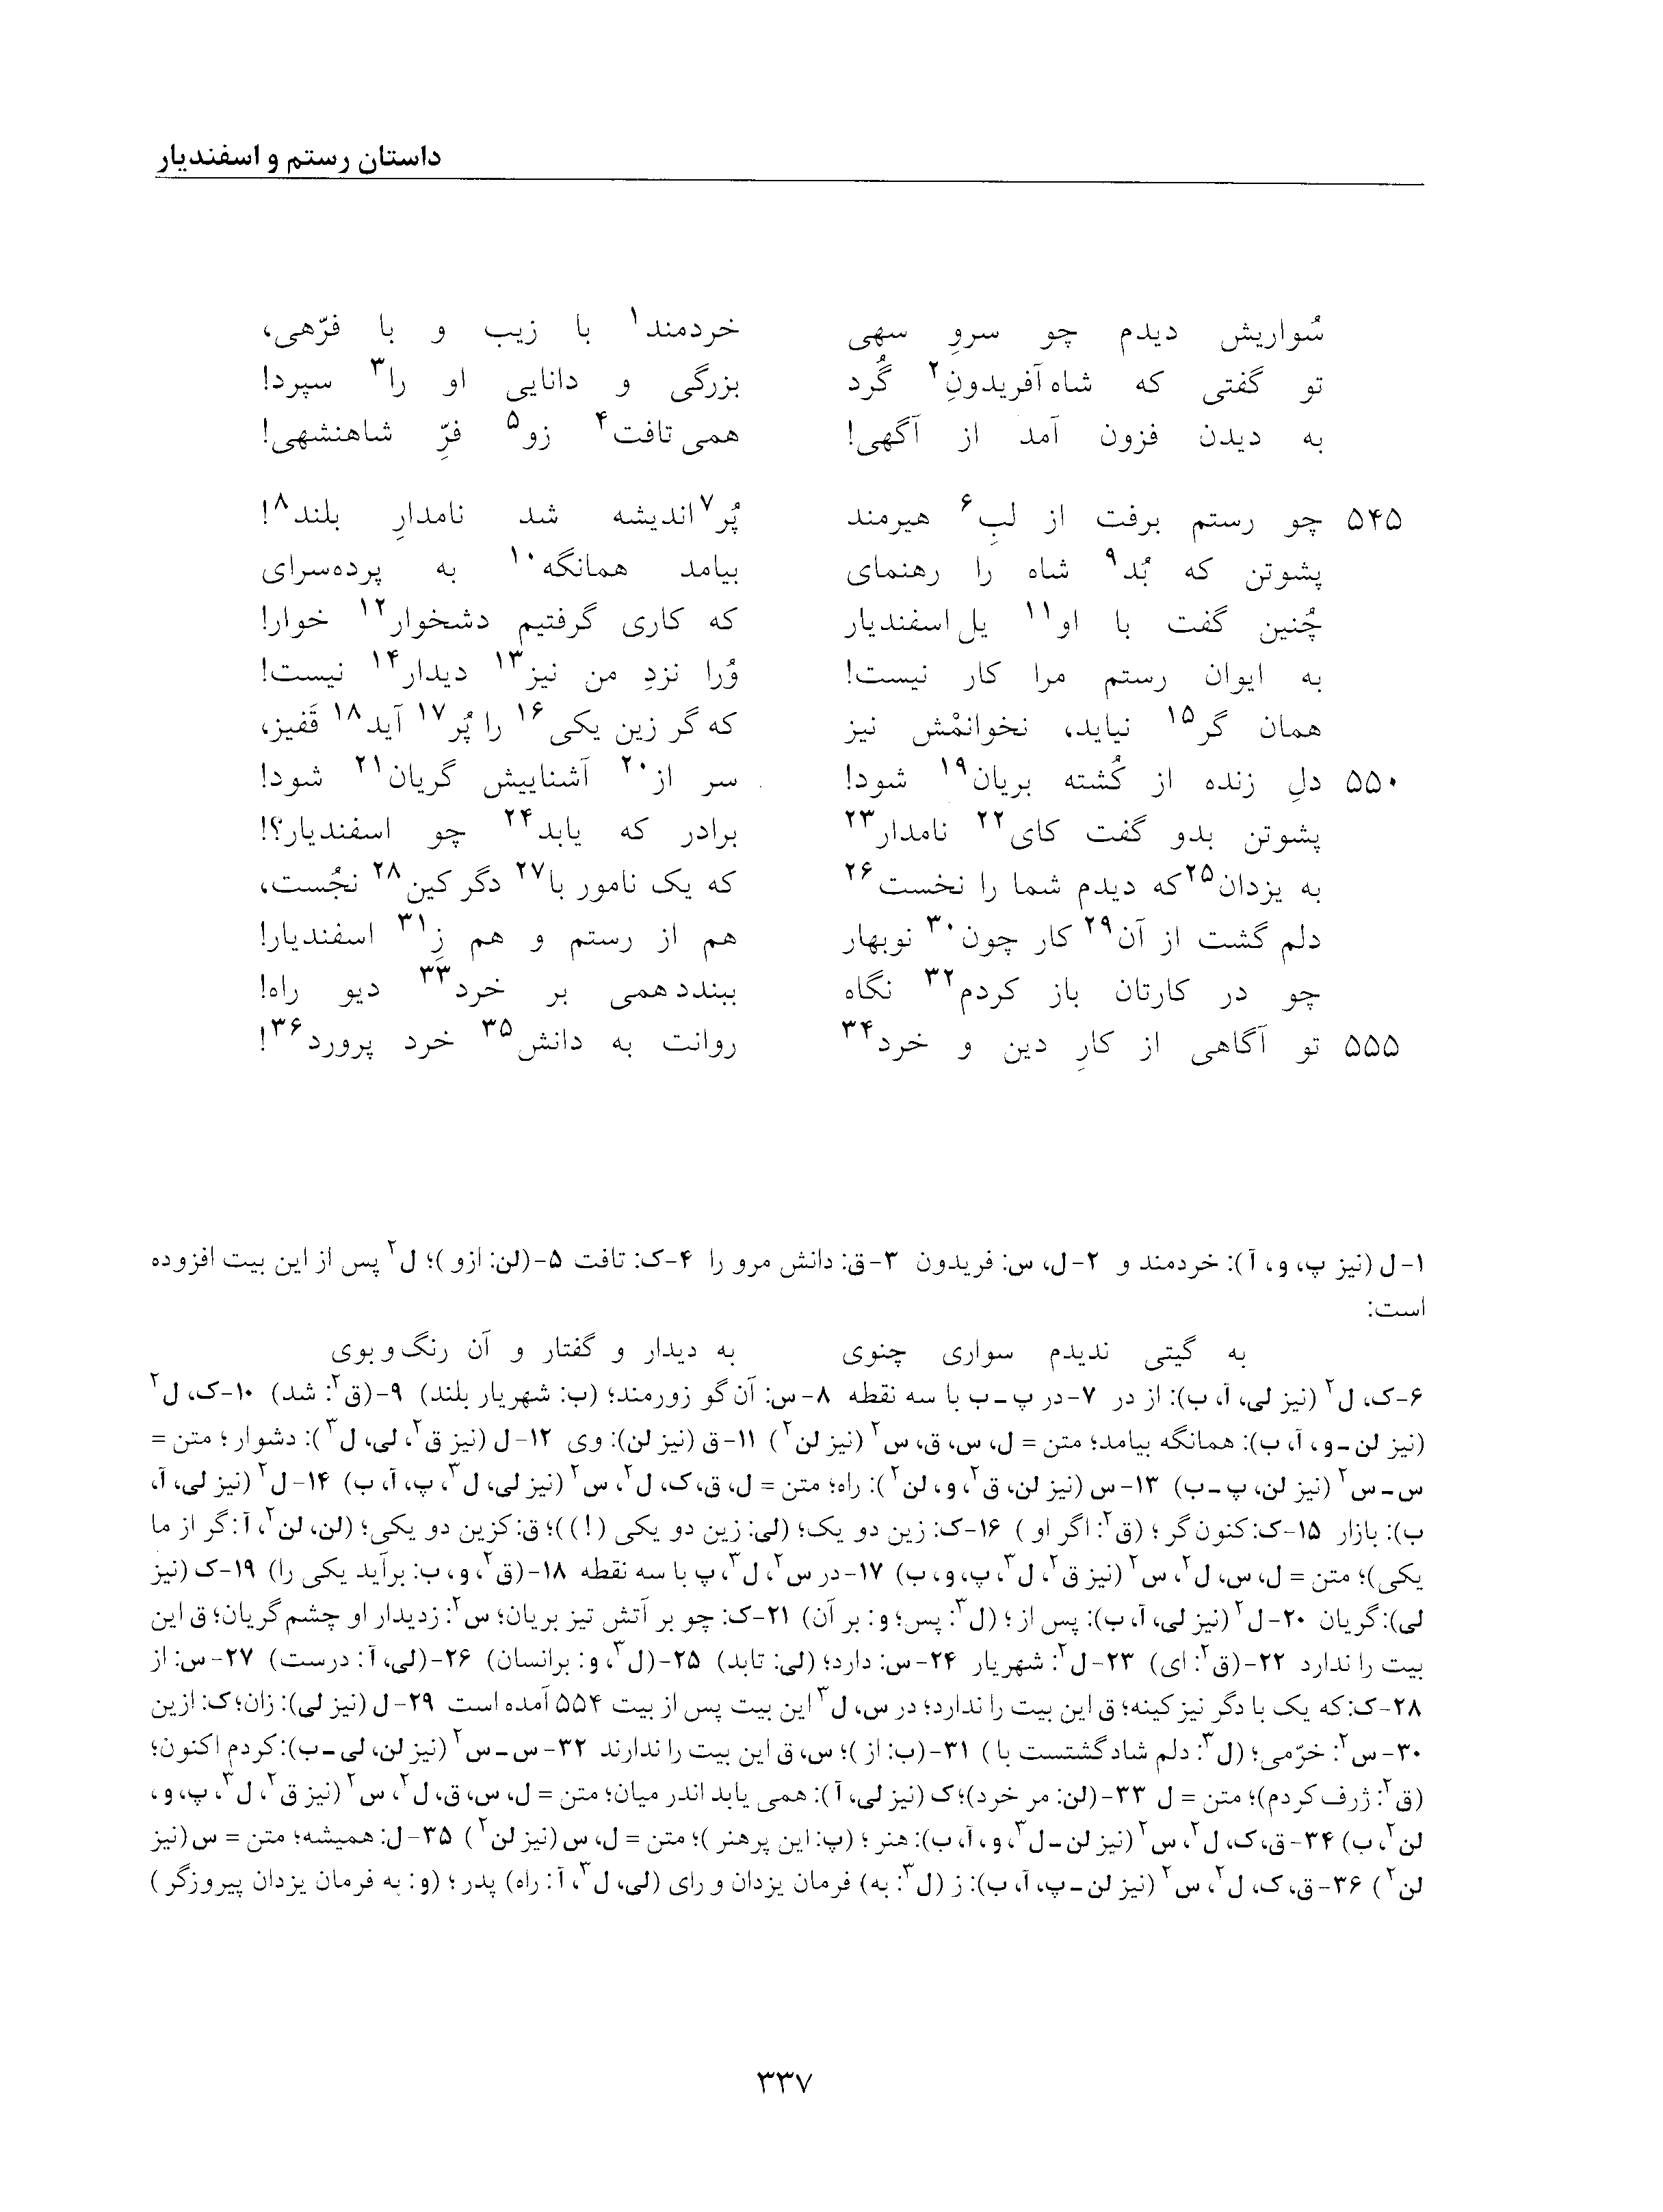 داستان رستم و اسفندیار
سُواریش دیدم چو سروِ سهی خردمند۱ با زیب و با فرّهی،
تو گفتی که شاه آفریدونِ۲ گُرد بزرگی و دانایی او را۳ سپرد!
به دیدن فزون آمد از آگهی! همی تافت۴ زو۵ فرِّ شاهنشهی!
۵۴۵ چو رستم برفت از لبِ۶ هیرمند پُر۷ اندیشه شد نامدارِ بلند۸!
پشوتن که بُد۹ شاه را رهنمای بیامد همانگه۱۰ به پرده‌سرای
چُنین گفت با او۱۱ یل اسفندیار که کاری گرفتیم دشخوار۱۲ خوار!
به ایوان رستم مرا کار نیست! وُرا نزدِ من نیز۱۳ دیدار۱۴ نیست!
همان گر۱۵ نیاید، نخوانمْش نیز که گر زین یکی۱۶ را پُر۱۷ آید۱۸ قَفیز،
۵۵۰ دلِ زنده از کُشته بریان۱۹ شود! سر از۲۰ آشناییش گریان۲۱ شود!
پشوتن بدو گفت کای۲۲ نامدار۲۳ برادر که یابد۲۴ چو اسفندیار؟!
به یزدان۲۵ که دیدم شما را نخست۲۶ که یک نامور با۲۷ دگر کین۲۸ نجُست،
دلم گشت از آن۲۹ کار چون۳۰ نوبهار هم از رستم و هم زِ۳۱ اسفندیار!
چو در کارتان باز کردم۳۲ نگاه ببندد همی بر خرد۳۳ دیو راه!
۵۵۵ تو آگاهی از کارِ دین و خرد۳۴ روانت به دانش۳۵ خرد پرورد۳۶!
۱-ل (نیز پ، و، آ): خردمند و ۲-ل، س: فریدون ۳-ق: دانش مرو را ۴-ک: تافت ۵-(لن: ازو)؛ ل۲ پس از این بیت افزوده
است:
به گیتی ندیدم سواری چنوی به دیدار و گفتار و آن رنگ و بوی
۶-ک، ل۲ (نیز لی، آ، ب): از در ۷-در پ-ب با سه نقطه ۸-س: آن گو زورمند؛ (ب: شهریار بلند) ۹-(ق۲: شد) ۱۰-ک، ل۲
(نیز لن-و، آ، ب): همانگه بیامد؛ متن = ل، س، ق، س۲ (نیز لن۲) ۱۱-ق (نیز لن): وی ۱۲-ل (نیز ق۲، لی، ل۳): دشوار؛ متن =
س-س۲ (نیز لن، پ-ب) ۱۳-س (نیز لن، ق۲، و، لن۲): راه؛ متن = ل، ق، ک، ل۲، س۲ (نیز لی، ل۳، پ، آ، ب) ۱۴-ل۲ (نیز لی، آ،
ب): بازار ۱۵-ک: کنون گر؛ (ق۲: اگر او) ۱۶-ک: زین دو یک؛ (لی: زین دو یکی (!))؛ ق: کزین دو یکی؛ (لن، لن۲، آ: گر از ما
یکی)؛ متن = ل، س، ل۲، س۲ (نیز ق۲، ل۳، پ، و، ب) ۱۷-در س۲، ل۳، پ با سه نقطه ۱۸-(ق۲، و، ب: برآید یکی را) ۱۹-ک (نیز
لی): گریان ۲۰-ل۲ (نیز لی، آ، ب): پس از؛ (ل۳: پس؛ و: بر آن) ۲۱-ک: چو بر آتش تیز بریان؛ س۲: زدیدار او چشم گریان؛ ق این
بیت را ندارد ۲۲-(ق۲: ای) ۲۳-ل۲: شهریار ۲۴-س: دارد؛ (لی: تابد) ۲۵-(ل۳، و: برانسان) ۲۶-(لی، آ: درست) ۲۷-س: از
۲۸-ک: که یک با دگر نیز کینه؛ ق این بیت را ندارد؛ در س، ل۳ این بیت پس از بیت ۵۵۴ آمده است ۲۹-ل (نیز لی): زان؛ ک: ازین
۳۰-س۲: خرّمی؛ (ل۳: دلم شاد گشتست با) ۳۱-(ب: از)؛ س، ق این بیت را ندارند ۳۲-س-س۲ (نیز لن، لی-ب): کردم اکنون؛
(ق۲: ژرف کردم)؛ متن = ل ۳۳-(لن: مر خرد)؛ ک (نیز لی، آ): همی یابد اندر میان؛ متن = ل، س، ق، ل۲، س۲ (نیز ق۲، ل۳، پ، و،
لن۲، ب) ۳۴-ق، ک، ل۲، س۲ (نیز لن-ل۳، و، آ، ب): هنر؛ (پ: این پرهنر)؛ متن = ل، س (نیز لن۲) ۳۵-ل: همیشه؛ متن = س (نیز
لن۲) ۳۶-ق، ک، ل۲، س۲ (نیز لن-پ، آ، ب): ز (ل۳: به) فرمان یزدان و رای (لی، ل۳، آ: راه) پدر؛ (و: به فرمان یزدان پیروزگر)
۳۳۷